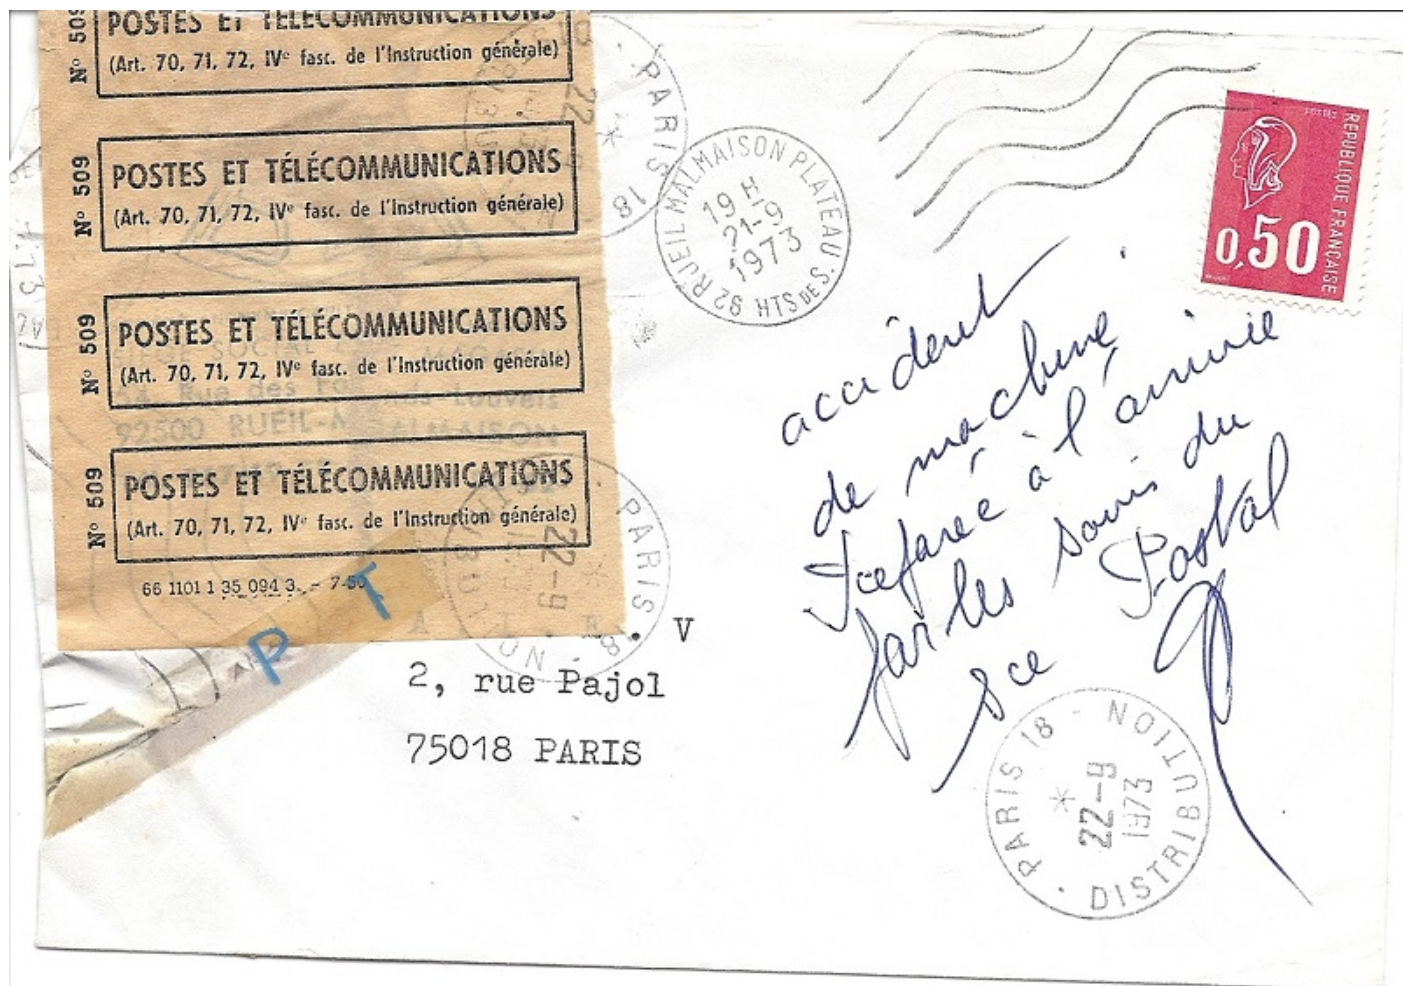 POSTES ET TÉLÉCOMMUNICATIONS
(Art. 70, 71, 72, IVe fasc. de l'Instruction générale)
N° 509
POSTES ET TÉLÉCOMMUNICATIONS
(Art. 70, 71, 72, IVe fasc. de l'Instruction générale)
N° 509
POSTES ET TÉLÉCOMMUNICATIONS
(Art. 70, 71, 72, IVe fasc. de l'Instruction générale)
N° 509
POSTES ET TÉLÉCOMMUNICATIONS
(Art. 70, 71, 72, IVe fasc. de l'Instruction générale)
N° 509
66 1101 1 35 094 3. - 7-50
SIEGE SOCIAL
Rue des
92500 RUEIL-MALMAISON
P T
PARIS 18
22
92 RUEIL MALMAISON PLATEAU
HTS DE S.
19 H
21-9
1973
REPUBLIQUE FRANÇAISE
POSTES
0,50
accident
de machine
réparée à l'arrivée
par les soins du
Sce Postal
PARIS 18
22-9
V
2, rue Pajol
75018 PARIS
PARIS 18 - DISTRIBUTION
22-9
1973